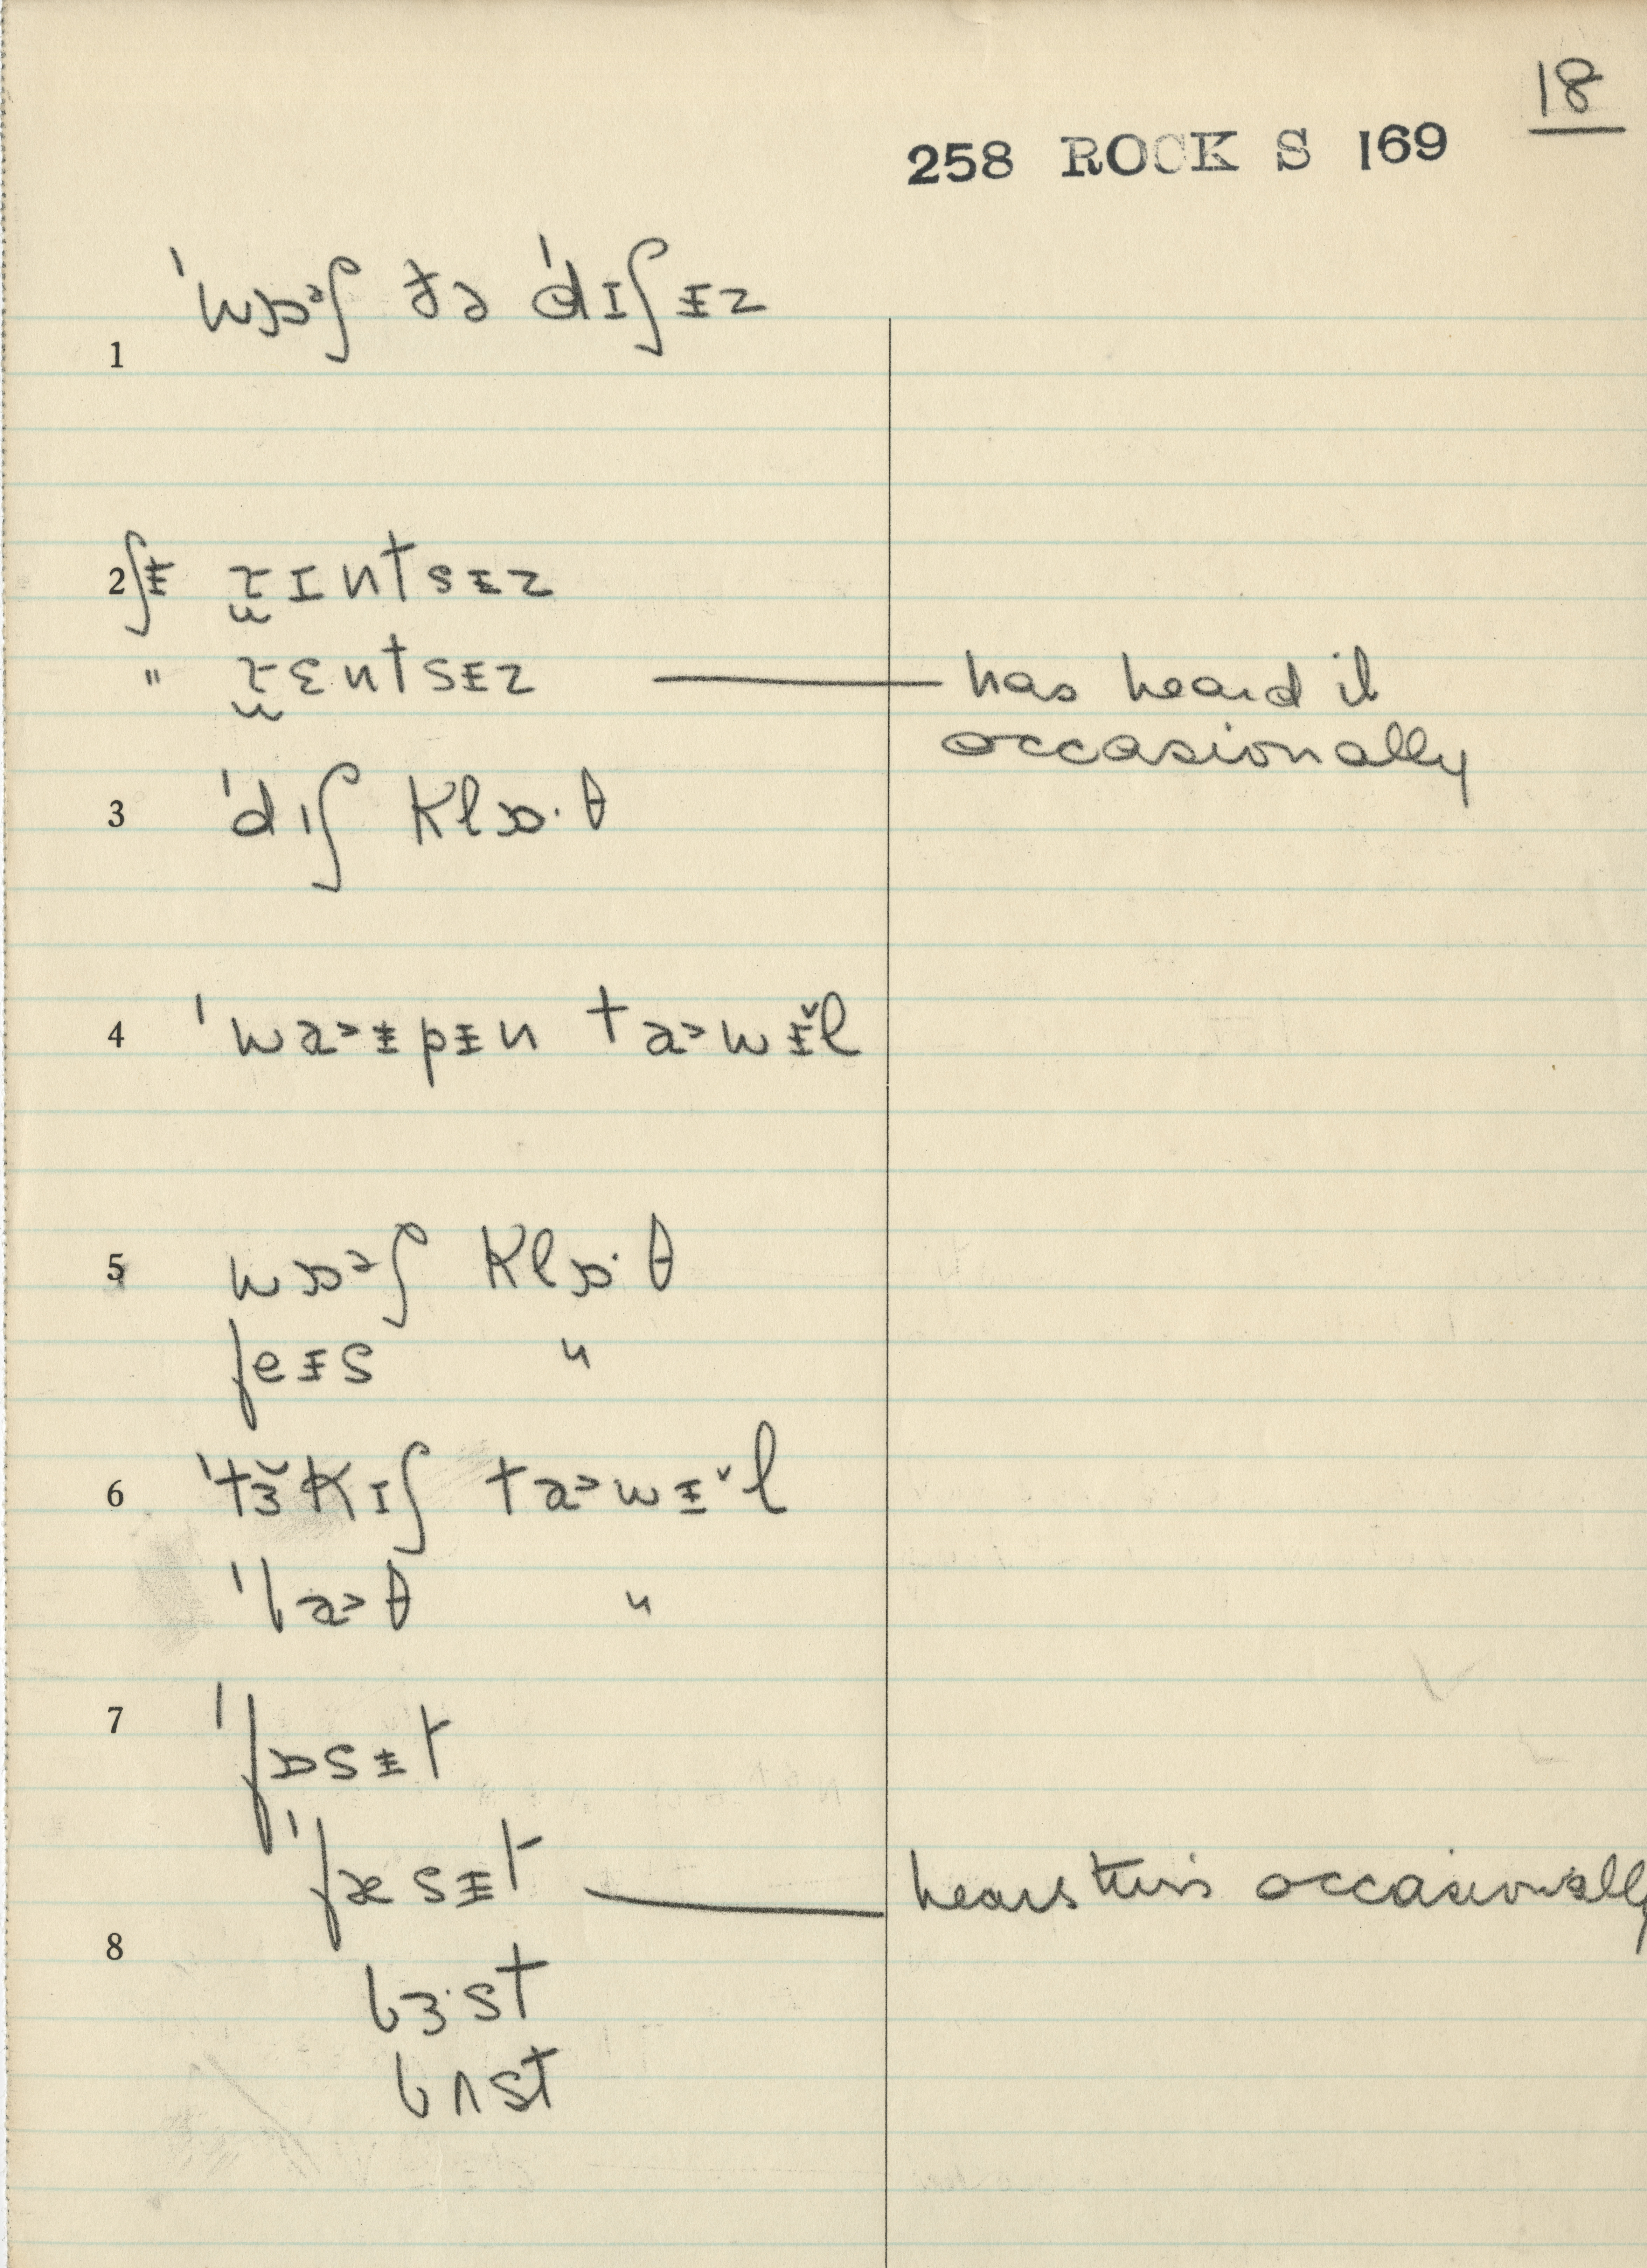 18
258 ROCK S 169
1 ˈwɒᵊʃ ðə ˈdɪʃɨz
2 ʃɨ ɹ̫ɪntsɨz
" ɹ̫ɛntsɨz — has heard it
occasionally
3 ˈdɪʃ klɒ·θ
4 ˈwa˃ɨpɨn ta˃wɨ̆l
5 wɒᵊʃ klɒ·θ
feɨs "
6 ˈtɜ̆kɪʃ ta˃wɨ̆l
ˈba˃θ "
7 ˈfɒsɨt
ˈfæsɨt — hears this occasionally
8 bɜ·st
bʌst